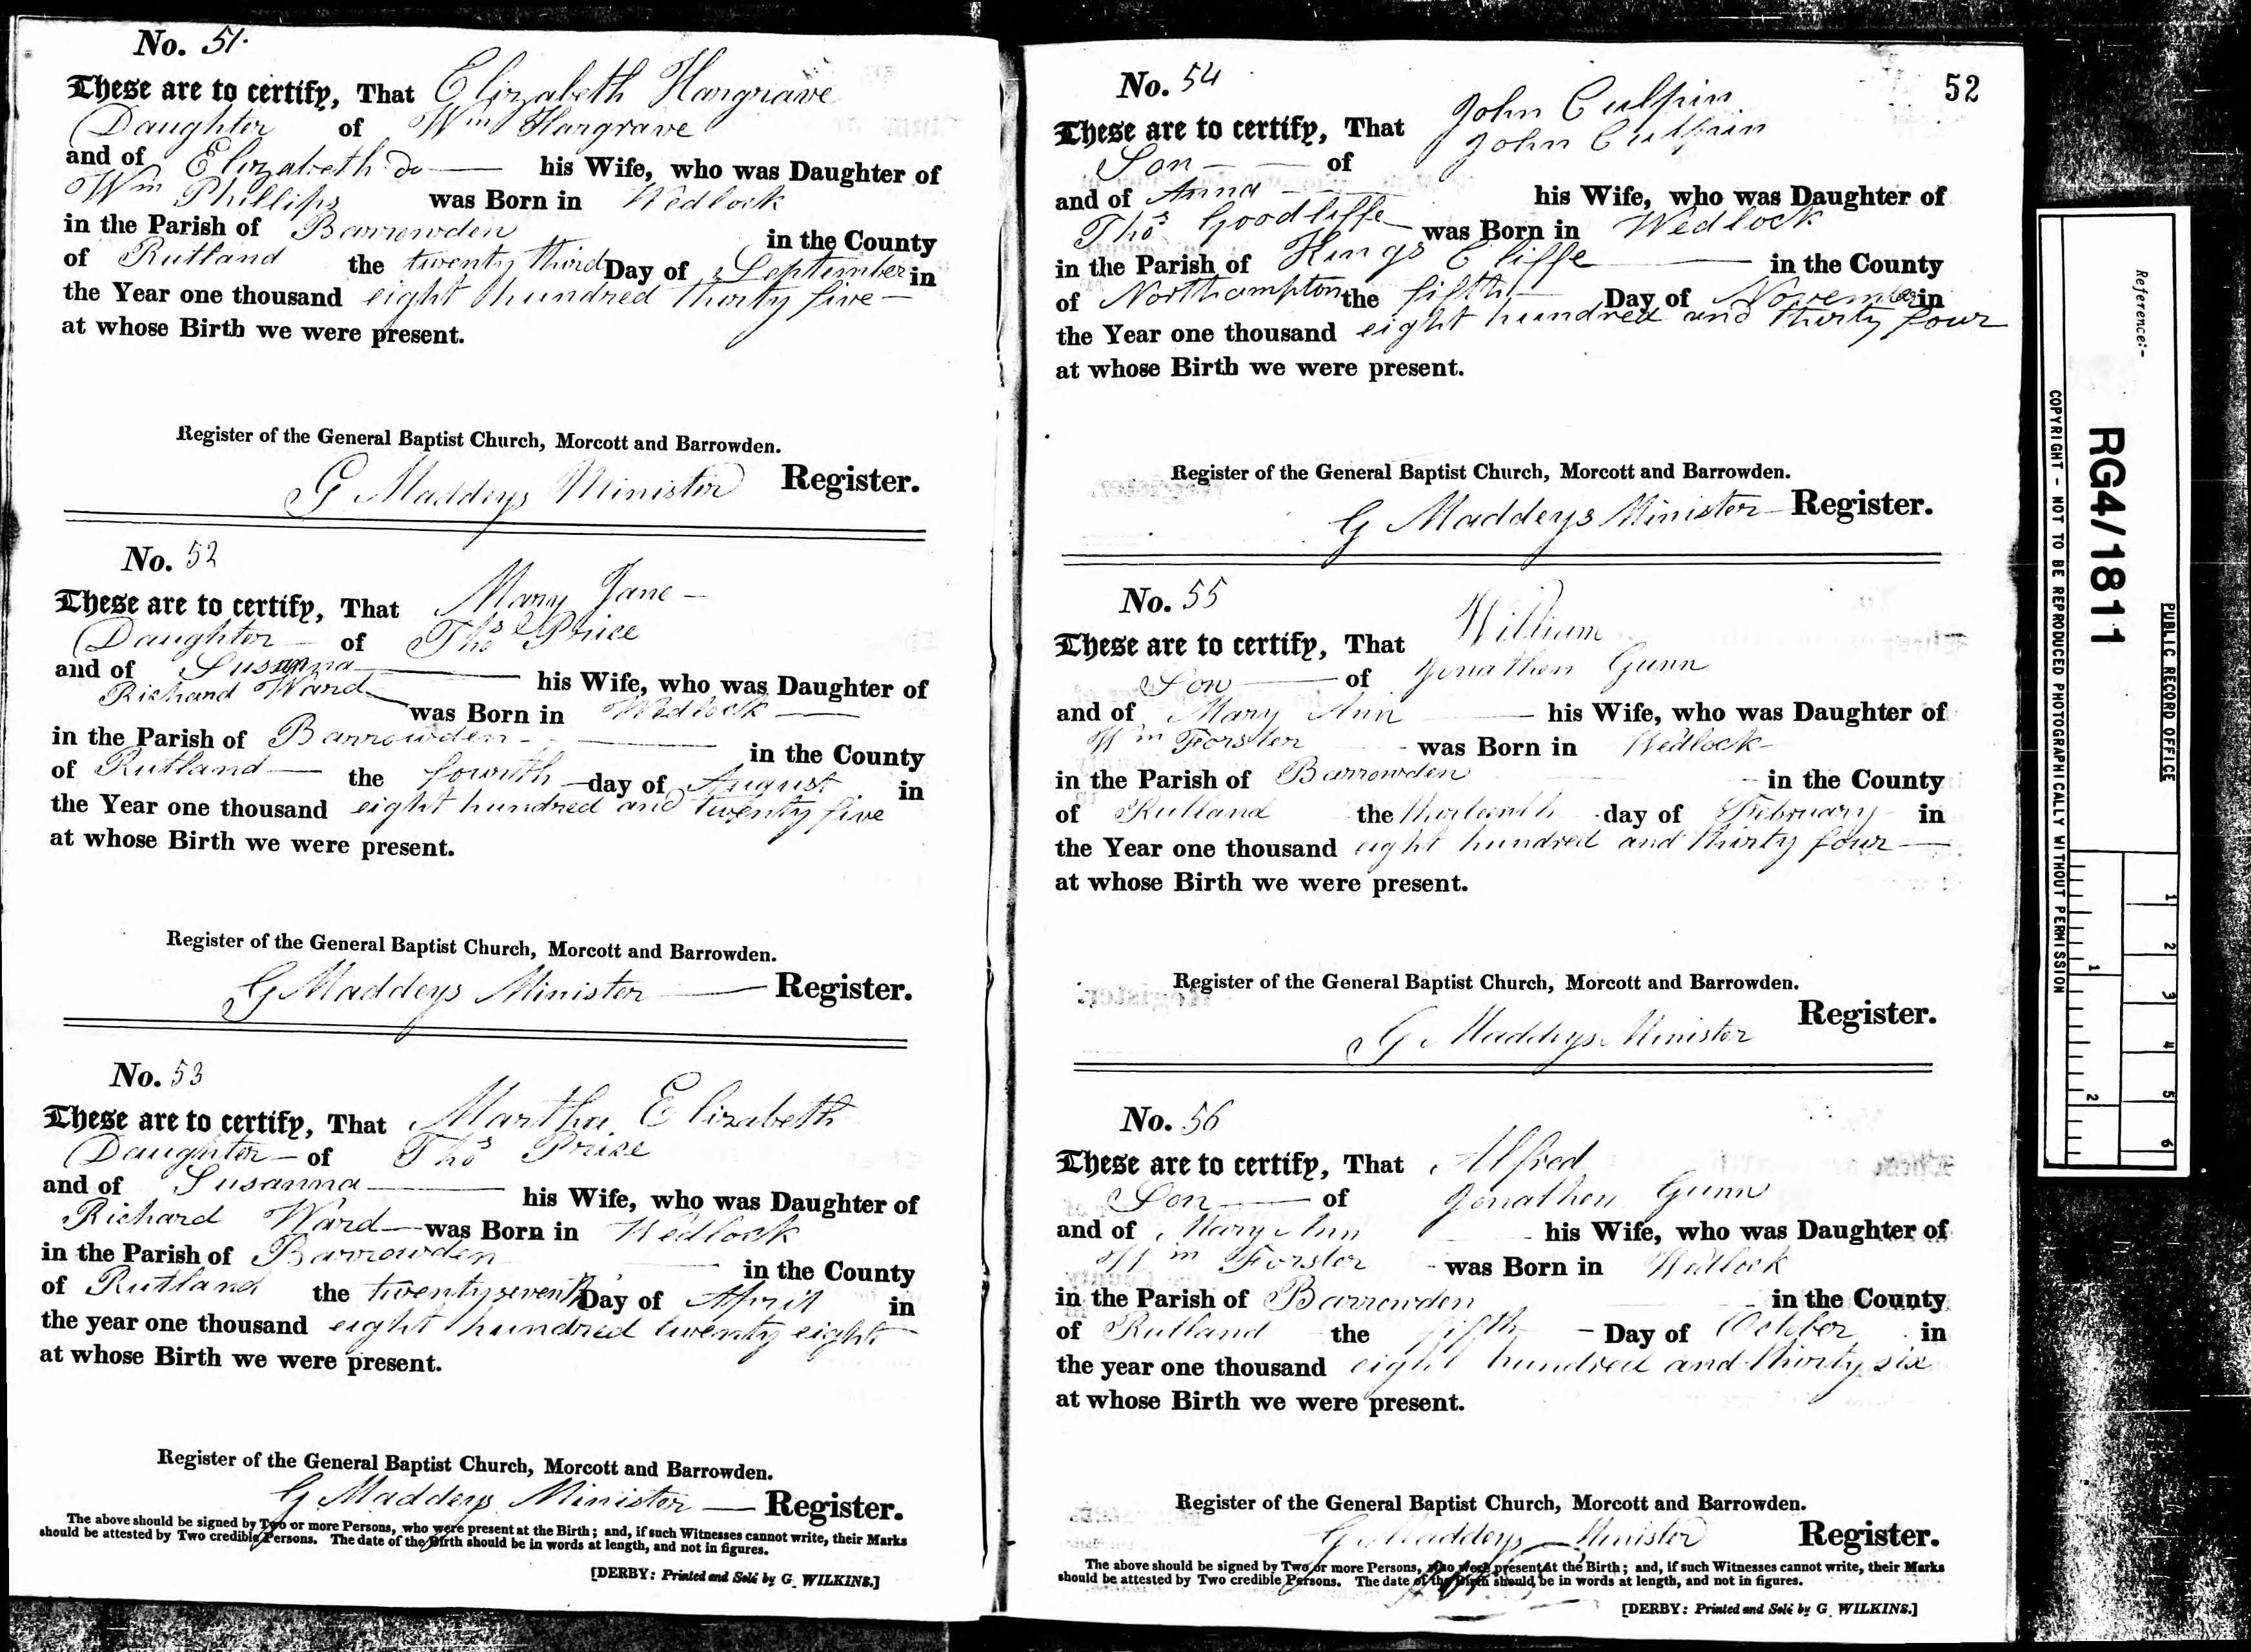 No. 51.
These are to certify, That Elizabeth Hargrave
Daughter of Wm Hargrave
and of Elizabeth Do his Wife, who was Daughter of
Wm Phillips was Born in Wedlock
in the Parish of Barrowden in the County
of Rutland the twenty third Day of September in
the Year one thousand eight hundred thirty five
at whose Birth we were present.
Register of the General Baptist Church, Morcott and Barrowden.
G Maddeys Minister Register.
No. 52
These are to certify, That Mary Jane
Daughter of Thos Price
and of Susanna his Wife, who was Daughter of
Richard Ward was Born in Wedlock
in the Parish of Barrowden in the County
of Rutland the fourth day of August in
the Year one thousand eight hundred and twenty five
at whose Birth we were present.
Register of the General Baptist Church, Morcott and Barrowden.
G Maddeys Minister Register.
No. 53
These are to certify, That Martha Elizabeth
Daughter of Thos Price
and of Susanna his Wife, who was Daughter of
Richard Ward was Born in Wedlock
in the Parish of Barrowden in the County
of Rutland the twenty seventh Day of April in
the year one thousand eight hundred twenty eight
at whose Birth we were present.
Register of the General Baptist Church, Morcott and Barrowden.
G Maddeys Minister Register.
The above should be signed by Two or more Persons, who were present at the Birth; and, if such Witnesses cannot write, their Marks
should be attested by Two credible Persons. The date of the Birth should be in words at length, and not in figures.
[DERBY: Printed and Sold by G. WILKINS.]
52
No. 54
These are to certify, That John Culpin
Son of John Culpin
and of Anna his Wife, who was Daughter of
Thos Goodliffe was Born in Wedlock
in the Parish of Kings Cliffe in the County
of Northampton the fifth Day of November in
the Year one thousand eight hundred and thirty four
at whose Birth we were present.
Register of the General Baptist Church, Morcott and Barrowden.
G Maddeys Minister Register.
No. 55
These are to certify, That William
Son of Jonathen Gunn
and of Mary Ann his Wife, who was Daughter of
Wm Forster was Born in Wedlock
in the Parish of Barrowden in the County
of Rutland the thirteenth day of February in
the Year one thousand eight hundred and thirty four
at whose Birth we were present.
Register of the General Baptist Church, Morcott and Barrowden.
G Maddeys Minister Register.
No. 56
These are to certify, That Alfred
Son of Jonathen Gunn
and of Mary Ann his Wife, who was Daughter of
Wm Forster was Born in Wedlock
in the Parish of Barrowden in the County
of Rutland the fifth Day of October in
the year one thousand eight hundred and thirty six
at whose Birth we were present.
Register of the General Baptist Church, Morcott and Barrowden.
G Maddeys Minister Register.
The above should be signed by Two or more Persons, who were present at the Birth; and, if such Witnesses cannot write, their Marks
should be attested by Two credible Persons. The date of the Birth should be in words at length, and not in figures.
[DERBY: Printed and Sold by G. WILKINS.]
PUBLIC RECORD OFFICE
Reference:-
RG4/1811
COPYRIGHT - NOT TO BE REPRODUCED PHOTOGRAPHICALLY WITHOUT PERMISSION
1 2 3 4 5 6
1 2